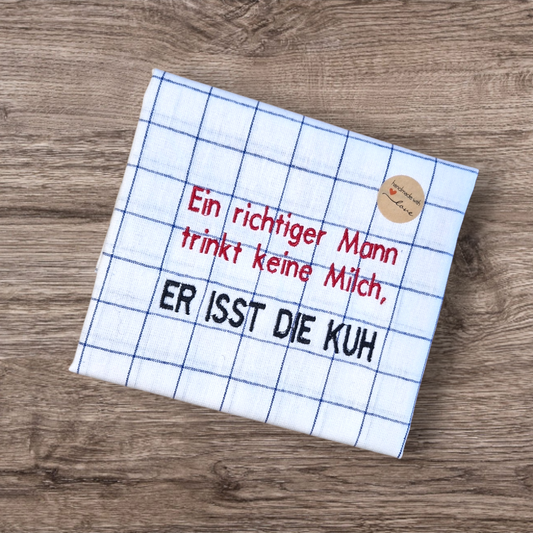 Ein richtiger Mann
trinkt keine Milch,
ER ISST DIE KUH
handmade with
Love